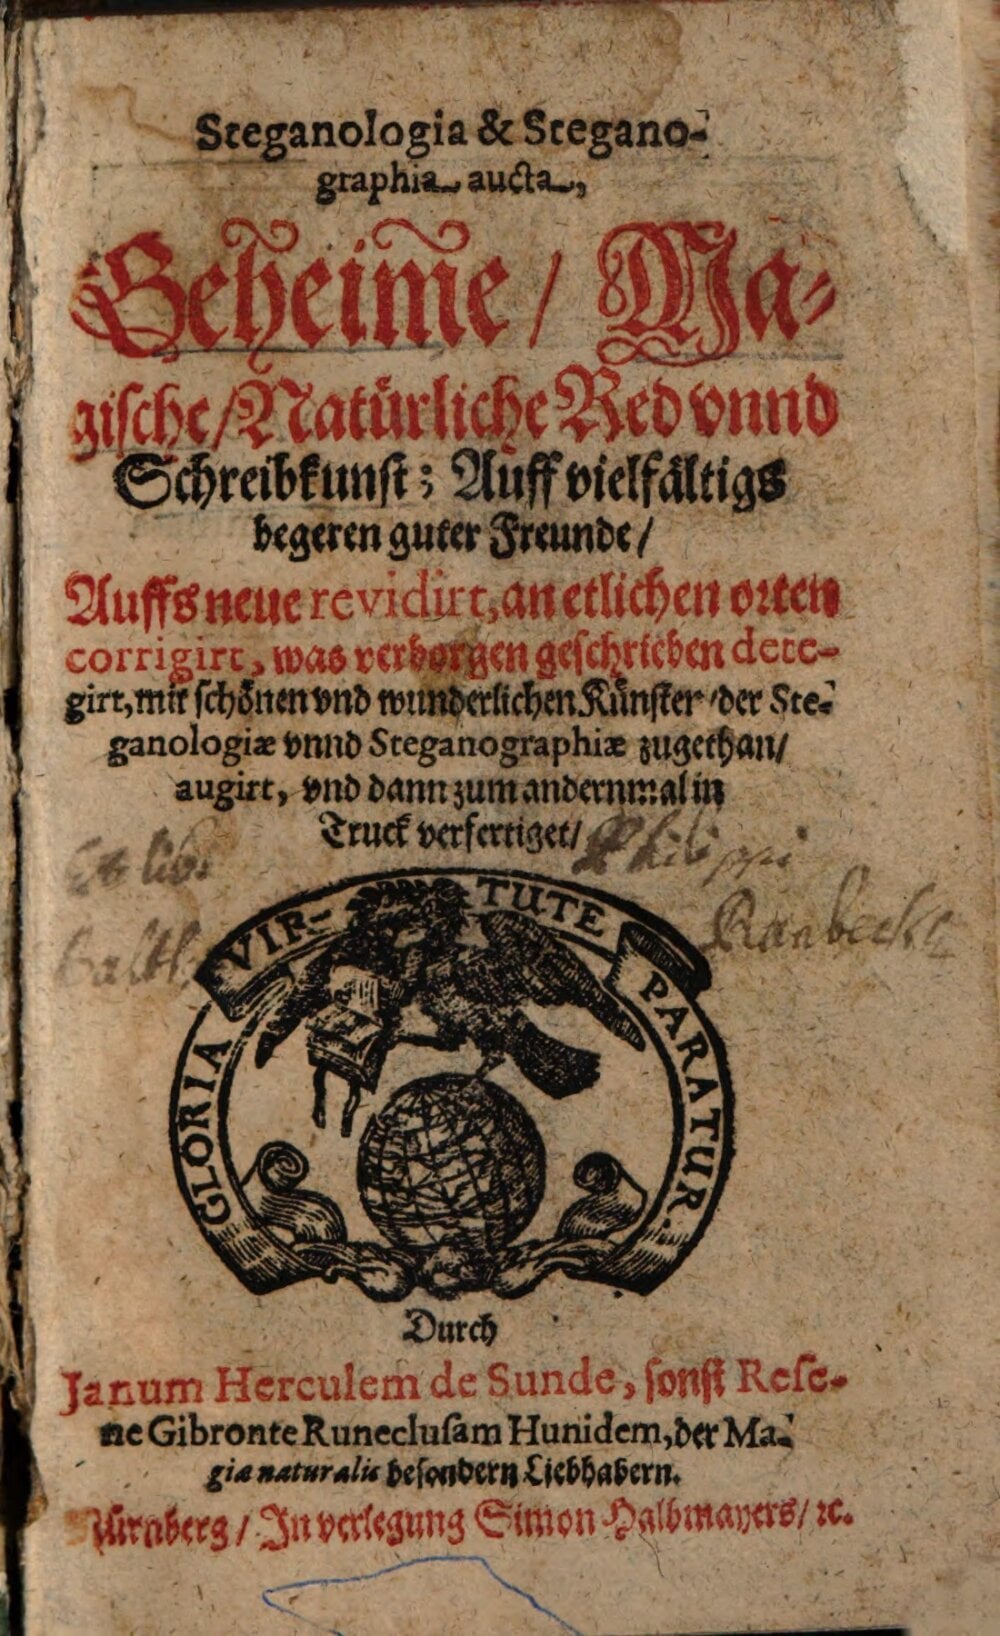 Steganologia & Stegano-
graphia aucta,
Geheim̃e / Ma-
gische / Natürliche Red vnnd
Schreibkunst; Auff vielfältigs
begeren guter Freunde /
Auffs neue revidirt, an etlichen orten
corrigirt, was verborgen geschrieben dete-
girt, mit schönen vnd wunderlichen Künsten / der Ste-
ganologiæ vnnd Steganographiæ zugethan /
augirt, vnd dann zum andernmal in
Truck verfertiget /
Ex lib.
Philippi
Ranbeck
GLORIA VIR-TUTE PARATUR.
Durch
Janum Herculem de Sunde, sonst Rese-
ne Gibronte Runeclusam Hunidem, der Ma-
giæ naturalis besondern Liebhabern.
Nürnberg / In verlegung Simon Halbmayers / ꝛc.